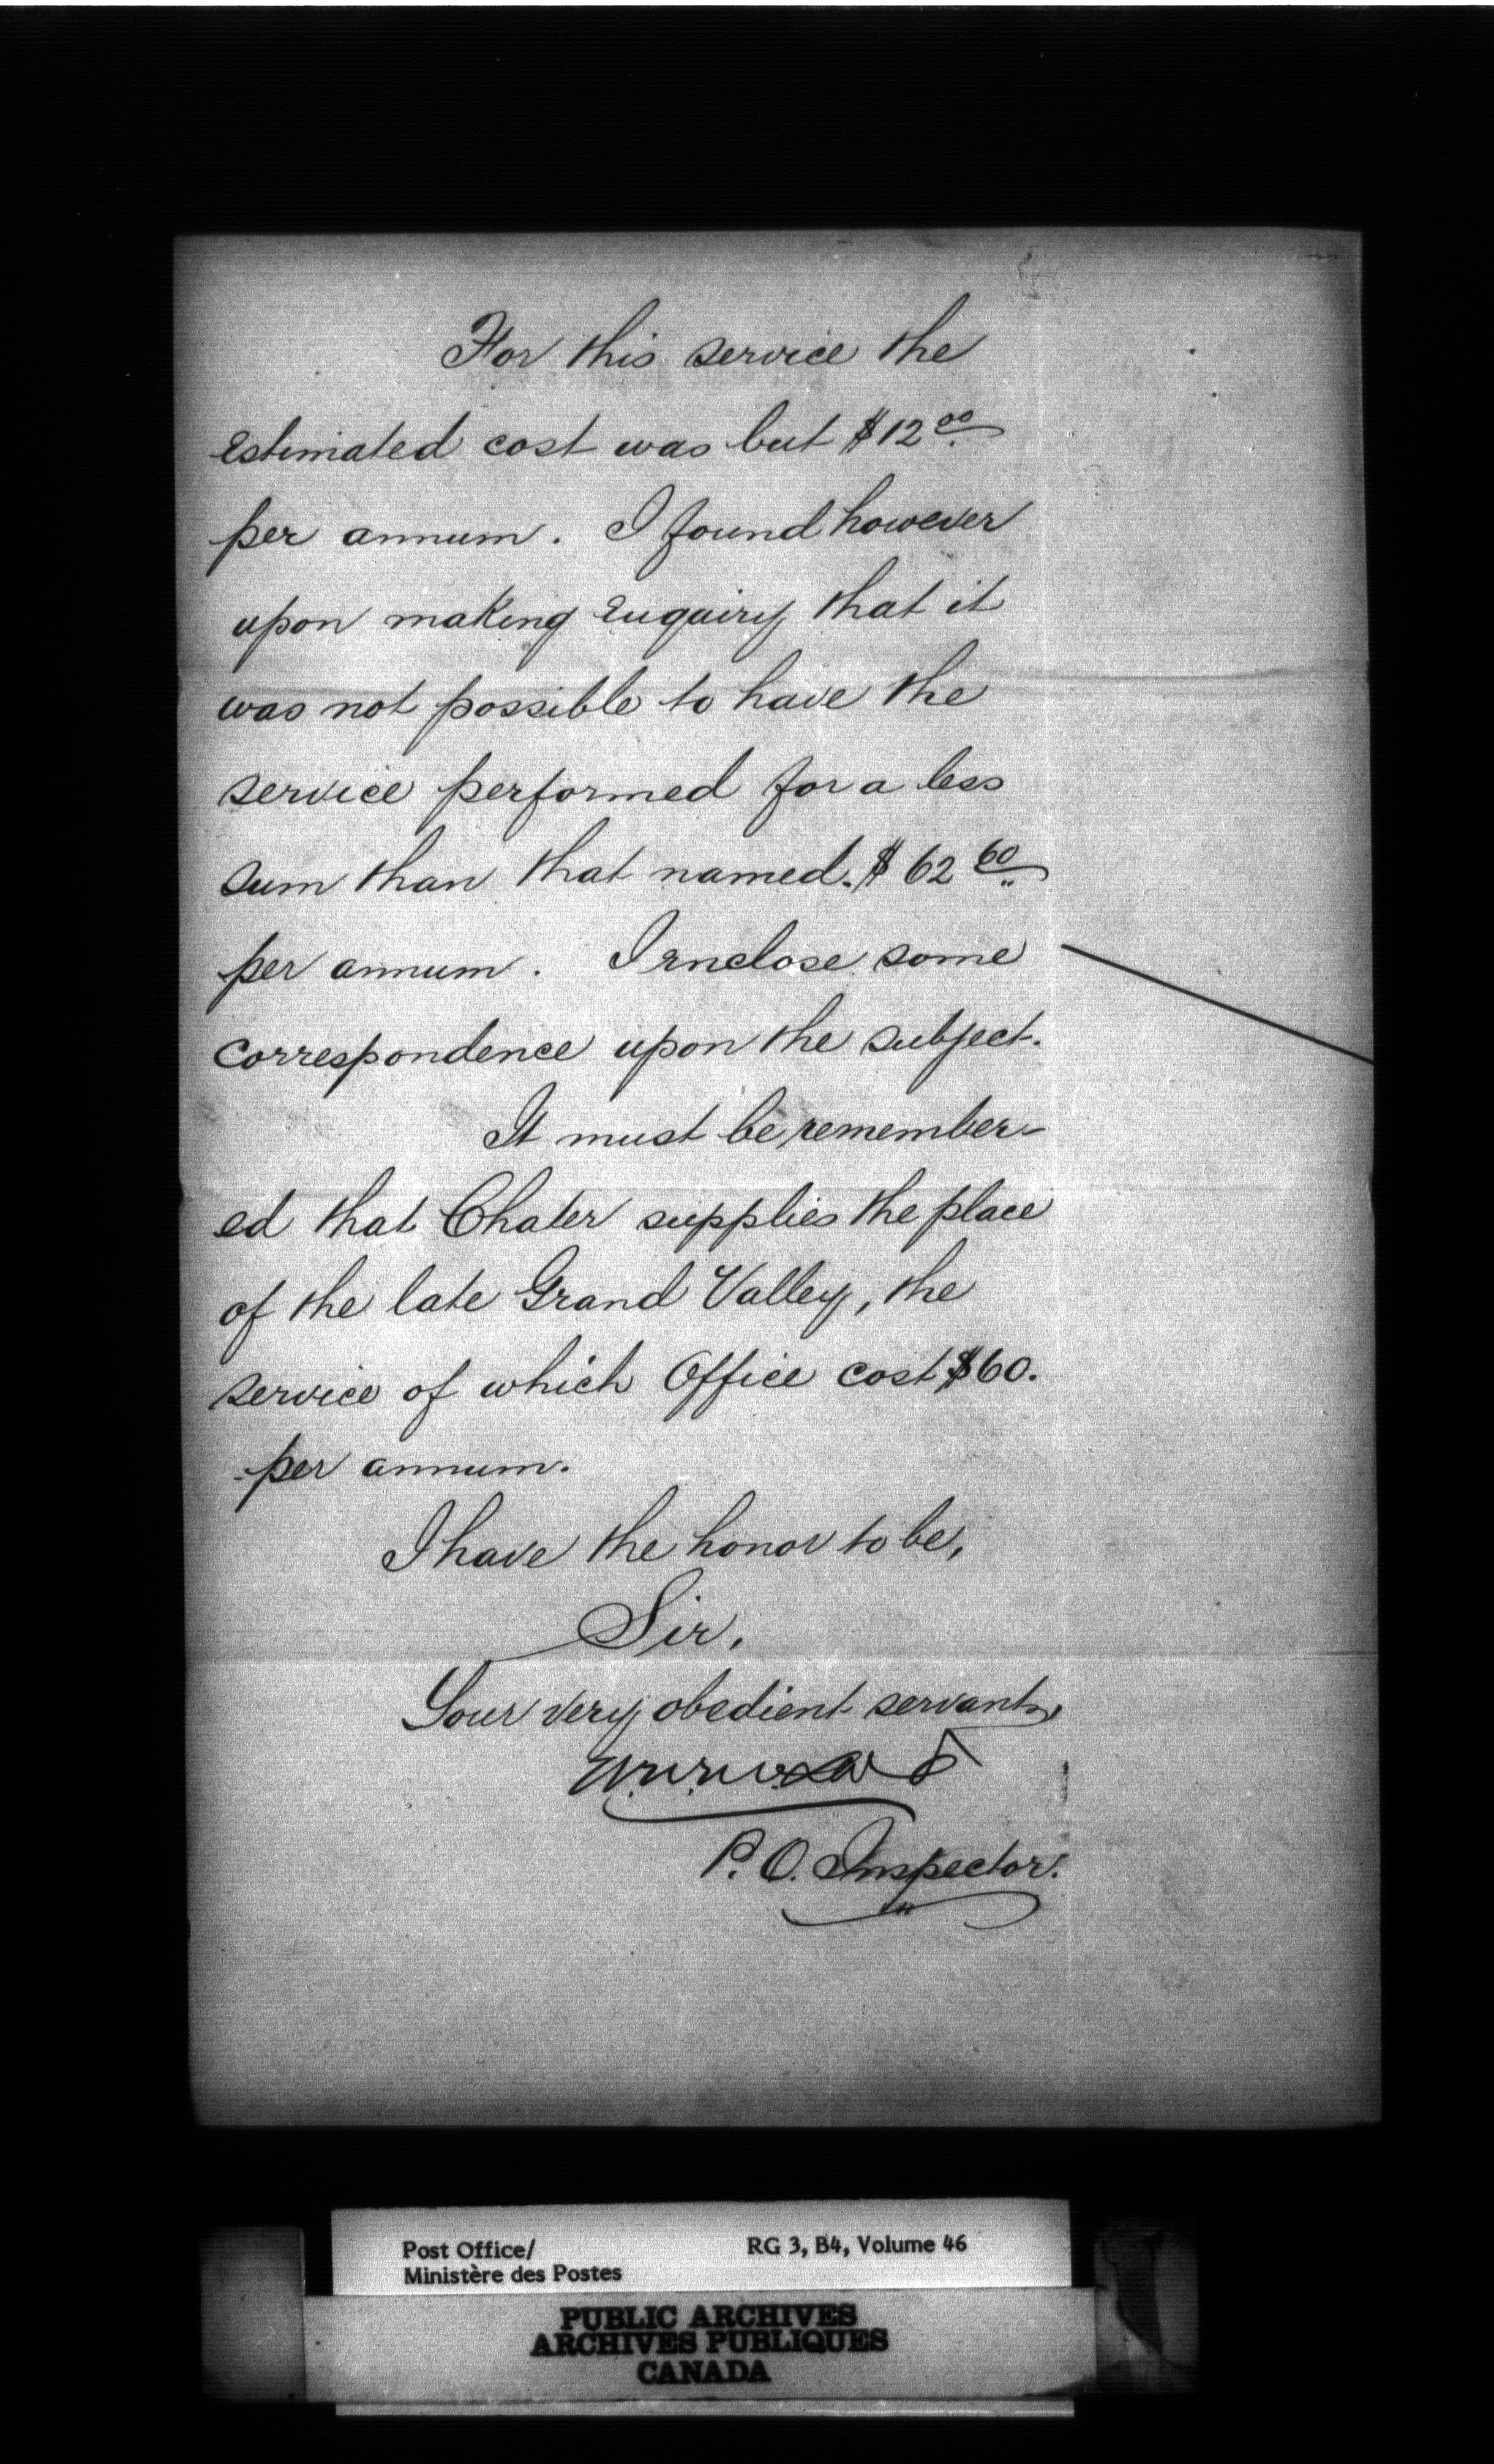 For this service the
estimated cost was but $12 00
per annum. I found however
upon making enquiry that it
was not possible to have the
service performed for a less
sum than that named. $62 60
per annum. I enclose some
correspondence upon the subject.
It must be remember-
ed that Chater supplies the place
of the late Grand Valley, the
service of which Office cost $60.
per annum.
I have the honor to be,
Sir,
Your very obedient servant,
P. O. Inspector.
Post Office/ RG 3, B4, Volume 46
Ministère des Postes
PUBLIC ARCHIVES
ARCHIVES PUBLIQUES
CANADA